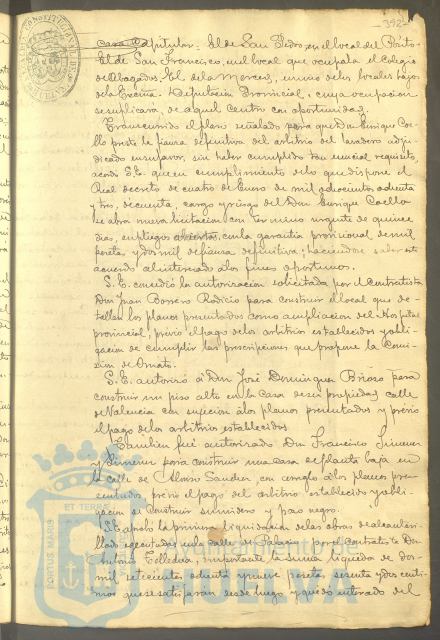 392
casa Capitular: El de San Pedro, en el local del Pósito
El de San Francisco, en el local que ocupaba el Colegio
de Abogados. El de la Merced, en uno de los locales bajos
de la Excma. Diputación Provincial, cuya ocupacion
se suplicara, de aquel Centro con oportunidad.
Transcurrido el plazo señalado para que Don Enrique Coe-
llo preste la fianza definitiva del arbitrio del lavadero adju-
dicado en su favor, sin haber cumplido tan esencial requisito,
acordó S.E. que en cumplimiento de lo que dispone el
Real decreto de cuatro de Enero de mil ochocientos ochenta
y tres, de cuenta, cargo y riesgo del Don Enrique Coello
se abra nueva licitacion con termino urgente de quince
dias, en pliegos abiertos, con la garantia provisional de mil
pesetas y dos mil de fianza definitiva; haciendose saber este
acuerdo al interesado a los fines oportunos.
S.E. concedió la autorizacion solicitada por el Contratista
Don Juan Borrero Rodicio para construir el local que de-
tallan los planos presentados como ampliacion del Hospital
provincial, previo el pago de los arbitrios establecidos y obli-
gacion de cumplir las prescripciones que propone la Comi-
sion de Ornato.
S.E. autorizó á Don José Dominguez Brioso para
construir un piso alto en la casa de su propiedad calle
de Valencia con sujecion a los planos presentados y previo
el pago de los arbitrios establecidos.
Tambien fué autorizado Don Francisco Jimenez
y Jimenez para construir una casa de planta baja en
la calle de Alonso Sanchez, con arreglo a los planos pre-
sentados, previo el pago del arbitrio establecido y obli-
gacion de construir sumidero y pozo negro.
S.E. aprobó la primera liquidacion de las obras de alcanta-
rillado ejecutadas en la calle de Palacio por el Contratista Don
Antonio Tolledo, importante la suma liquida de dos
mil setecientas ochenta y nueve pesetas, sesenta y dos centi-
mos que se satisfaran desde luego y quedó enterado del
ET TERRAE
PORTUS MARIS
Ayuntamiento de
HUELVA